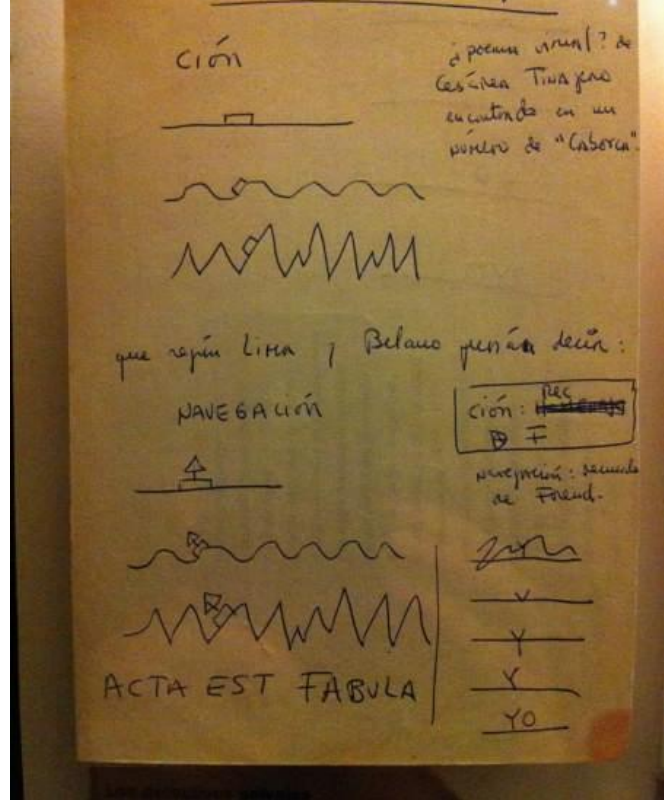 CIÓN
¿poema visual? de
Cesárea Tinajero
encontrado en un
número de "Caborca".
que según Lima y Belano decía:
NAVEGACIÓN
CIÓN: Rec
F
navegación: recuerdo
de Freud.
V
Y
Y
YO
ACTA EST FABULA